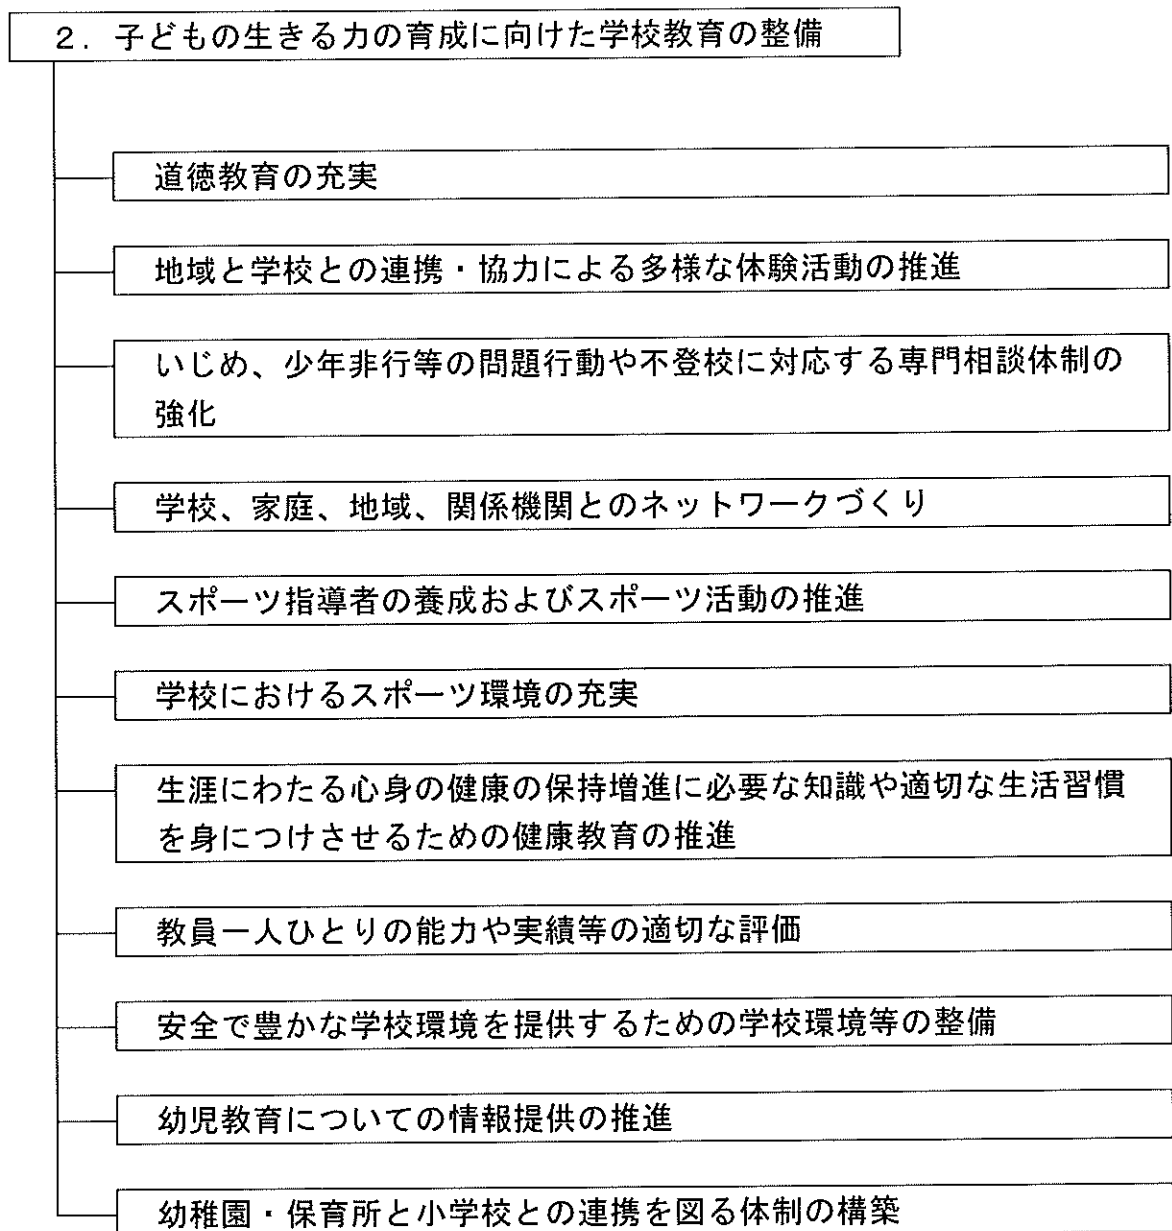 2．子どもの生きる力の育成に向けた学校教育の整備
道徳教育の充実
地域と学校との連携・協力による多様な体験活動の推進
いじめ、少年非行等の問題行動や不登校に対応する専門相談体制の
強化
学校、家庭、地域、関係機関とのネットワークづくり
スポーツ指導者の養成およびスポーツ活動の推進
学校におけるスポーツ環境の充実
生涯にわたる心身の健康の保持増進に必要な知識や適切な生活習慣
を身につけさせるための健康教育の推進
教員一人ひとりの能力や実績等の適切な評価
安全で豊かな学校環境を提供するための学校環境等の整備
幼児教育についての情報提供の推進
幼稚園・保育所と小学校との連携を図る体制の構築